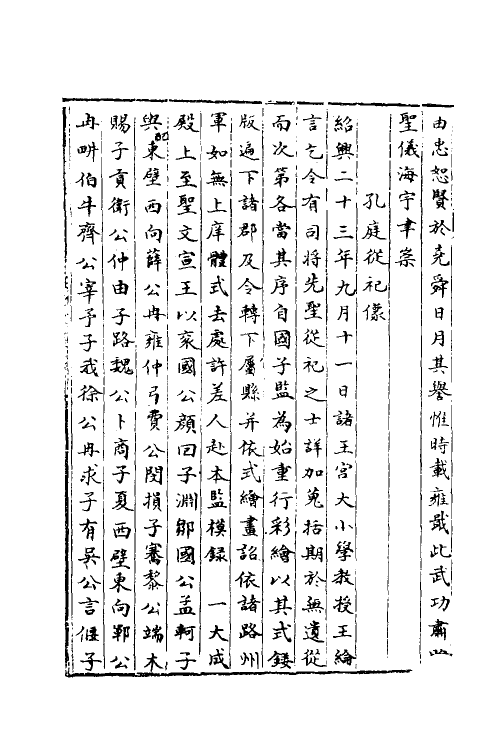 由忠恕賢於堯舜日月其譽惟時載雍戢此武功肅
聖儀海宇聿崇
孔庭從祀像
紹興二十三年九月十一日諸王宮大小學教授王綸
言乞令有司將先聖從祀之士詳加蒐括期於無遺從
而次第各當其序自國子監為始重行彩繪以其式鏤
版遍下諸郡及令轉下屬縣并依式繪畫詔依諸路州
軍如無上庠體式去處許差人赴本監模錄 一大成
殿上至聖文宣王以兗國公顏回子淵鄒國公孟軻子
與配東壁西向薛公冉雍仲弓費公閔損子騫黎公端木
賜子貢衛公仲由子路魏公卜商子夏西壁東向鄆公
冉畊伯牛齊公宰予子我徐公冉求子有吳公言偃子